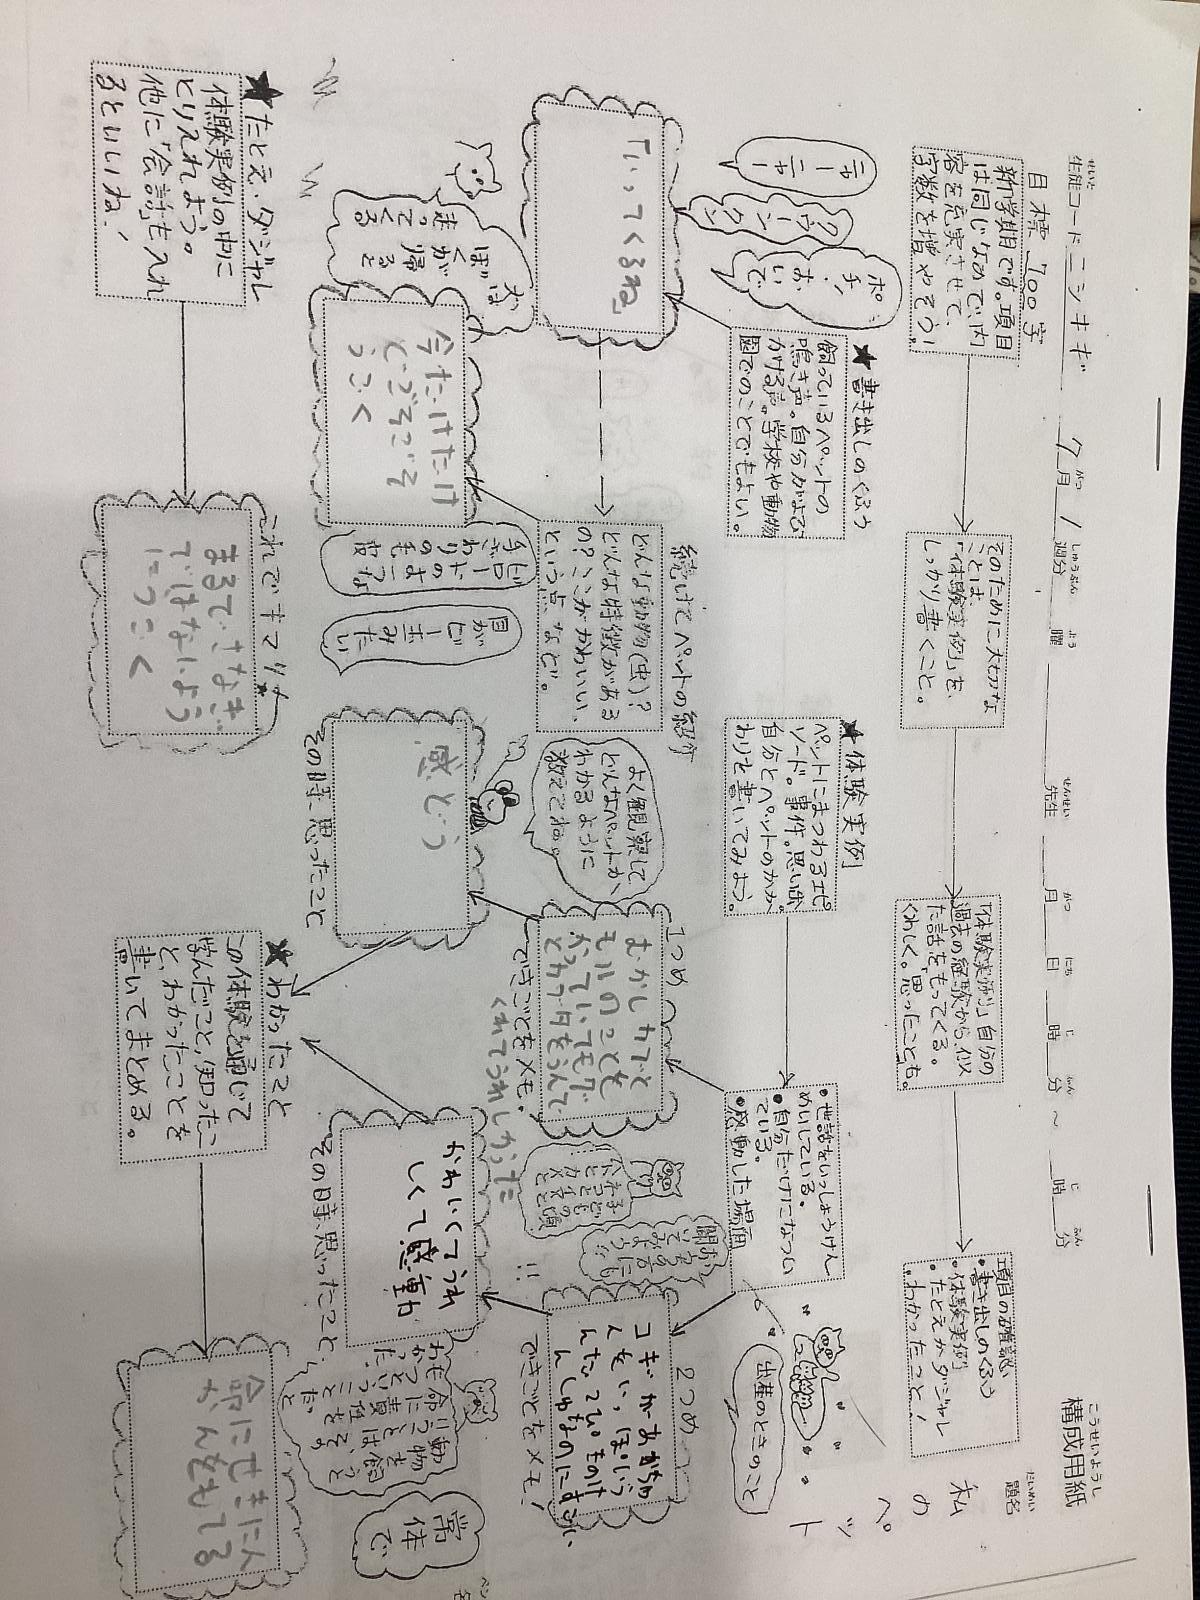 構成用紙
こうせいようし
題名
だいめい
私のペット
生徒コード ニシキギ
せいと
7月 1週分
がつ しゅうぶん
曜
よう
先生
せんせい
月 日 時 分 ～ 時 分
がつ にち じ ふん じ ふん
目標 700字
新学期です。項目
は同じなので内
容を充実させて、
字数を増やそう！
そのために大切な
ことは、
「体験実例」を、
しっかり書くこと。
「体験実例」自分の
過去の経験から、似
た話をもってくる。
くわしく。思ったことも。
項目の確認
・書き出しのくふう
・体験実例
・たとえかダジャレ
・わかったこと！
★書き出しのくふう
飼っているペットの
鳴き声。自分がよび
かける声。学校や動物
園でのことでもよい。
ニャーニャー
クウーンクン
ポチ！
おいで
「いってくるね」
続けてペットの紹介
どんな動物(虫)？
どんな特徴がある
の？ここがかわいい、
という点、など。
今たけたけ
どいでそこいそ
うごく
ぼくが帰ると
走ってくる
ビロードのような
手ざわりの毛皮
目が
ビー玉みたい
よく観察して
どんなペットか、
わかるように
教えてね。
★体験実例
ペットにまつわるエピ
ソード。事件。思い出。
自分とペットのかか
わりを書いてみよう。
・世話をいっしょうけん
めいしている。
・自分だけになつい
ている。
・感動した場面
出産のときのこと
1つめ
むかしかでと
モルのことを
かっていてモグ
とカケ月をうんで
くれてうれしかった
できごとをメモ！
感どう
その時思ったこと
2つめ
できごとをメモ！
かわいくてうれ
しくて感動
その時思ったこと
小動物を飼う
ことは、その
命に責任を
もつということ
だ、と
わかった。
常体で
★たとえ・ダジャレ
体験実例の中に
とり入れよう。
他に「会話」も入れ
るといいね！
これでキマリ★
まるで、さなぎ…
ではないよう
にうごく
★わかったこと
この体験を通じて
学んだこと、知ったこ
と、わかったことを
書いてまとめる。
命にせきにん
かんをもてる